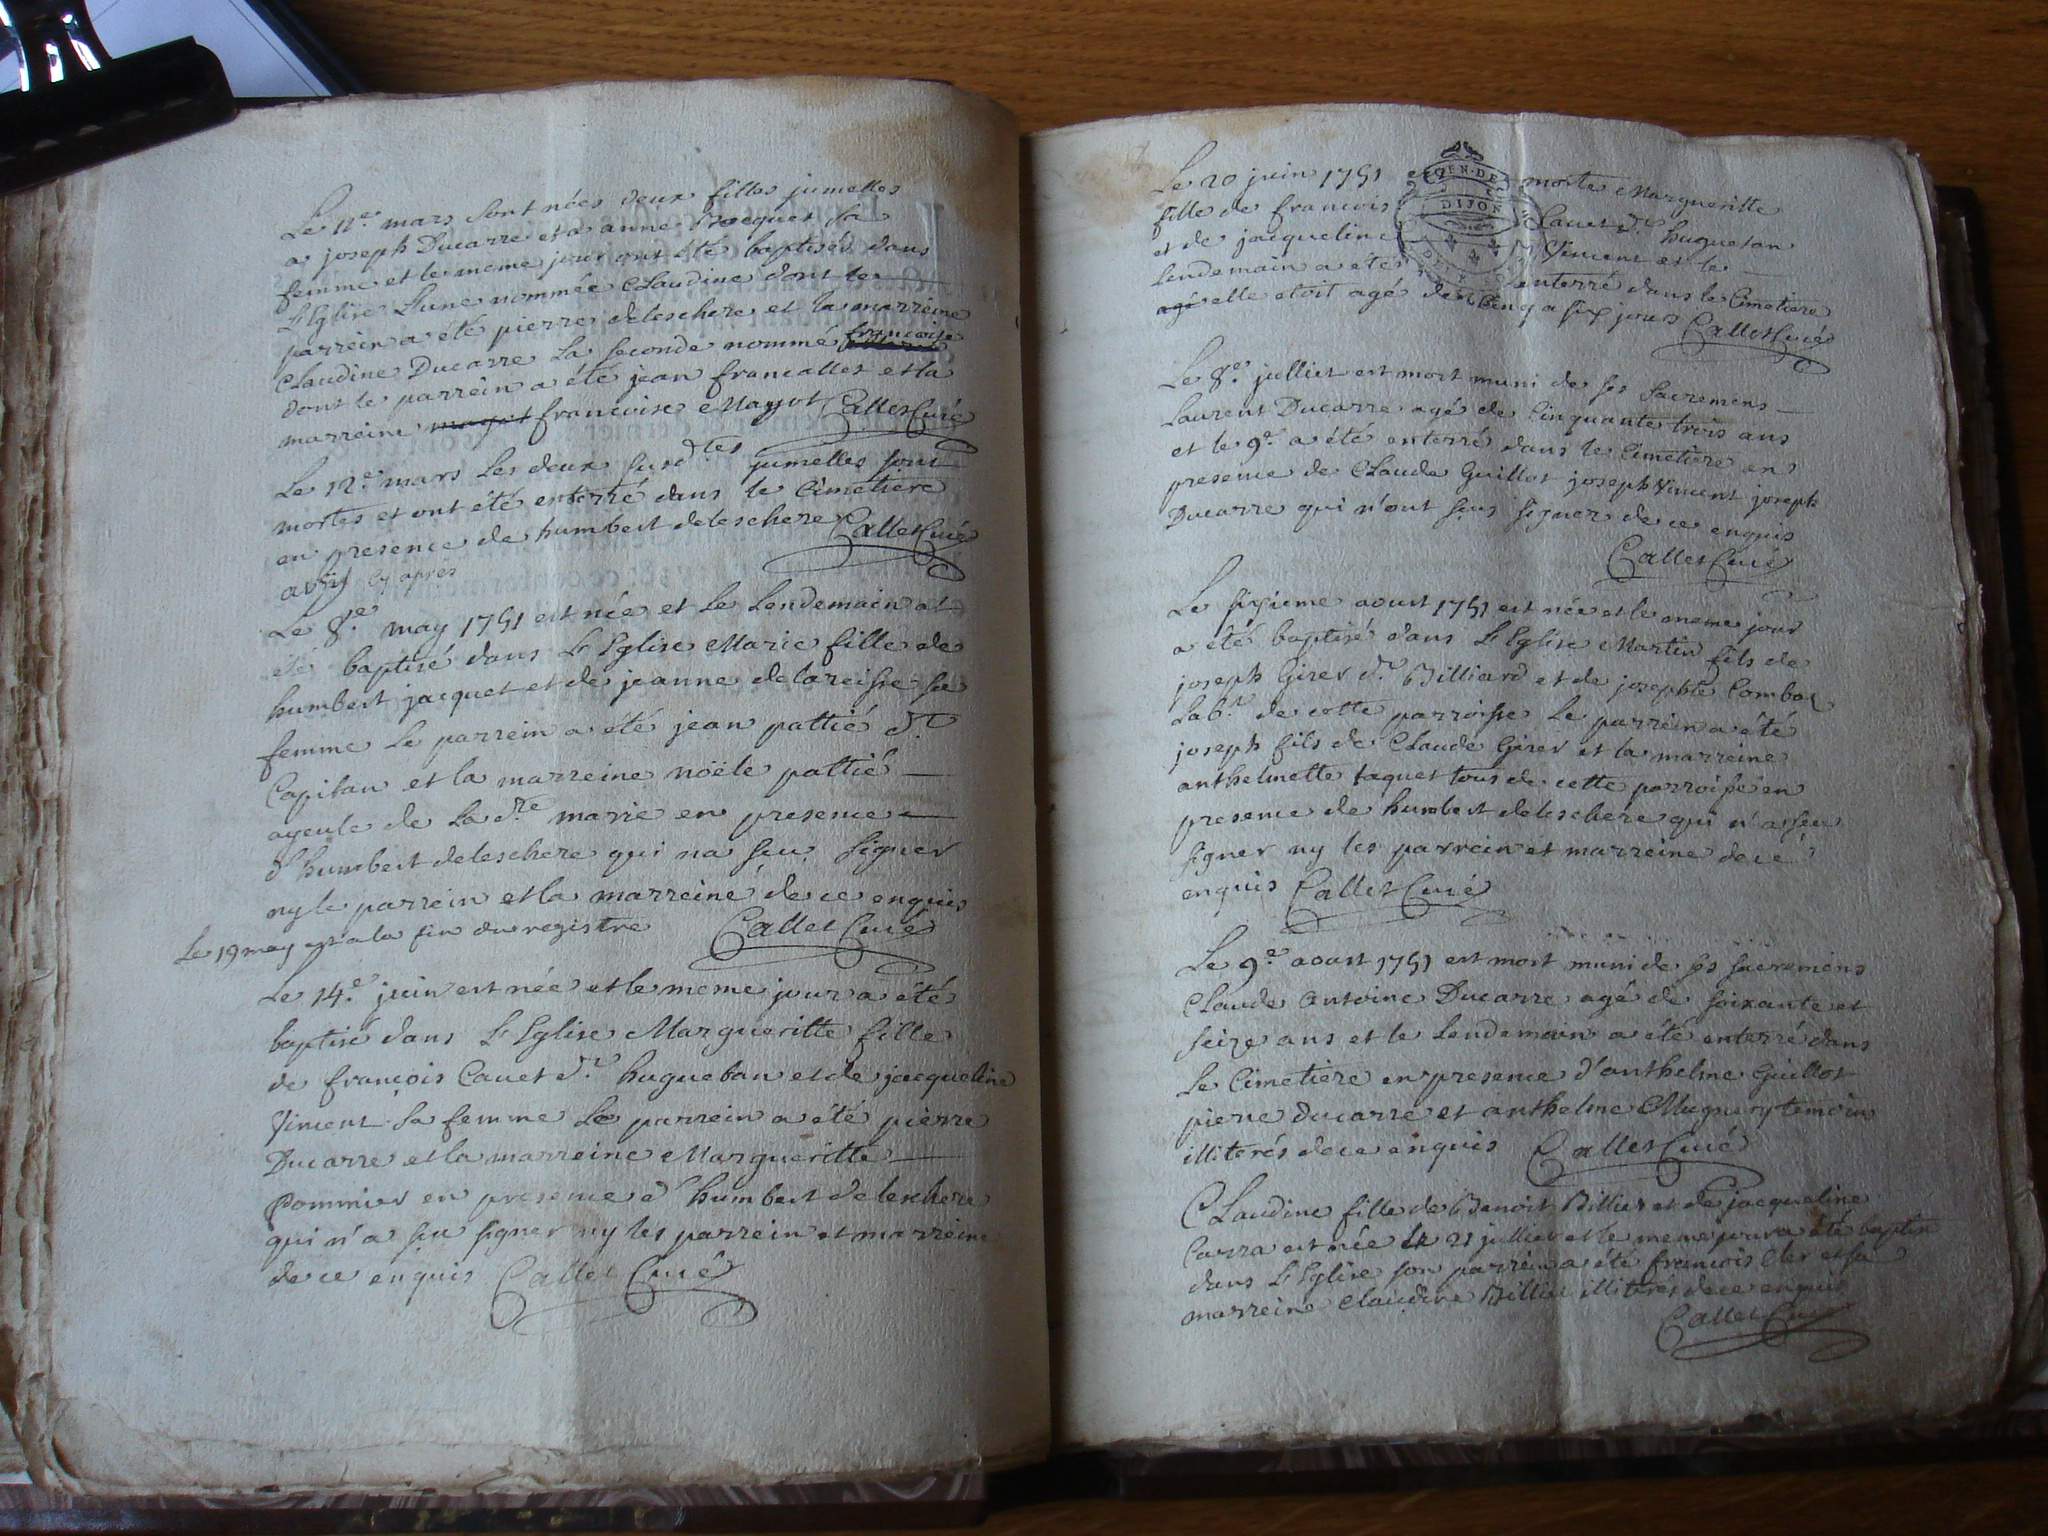 Le 11e. mars sont nées deux filles jumelles
a joseph Ducarre et a anne Bocquet sa
femme et le meme jour ont été baptisés dans
L'Eglise L'une nommée Claudine dont le
parrein a été pierre deleschere et la marreine
Claudine Ducarre La seconde nommé francoise
dont le parrein a été jean francallet et la
marreine francoise Mayot Callet Curé
Le 12e. mars Les deux susdtes jumelles sont
mortes et ont été enterré dans le Cimetiere
en presence de humbert deleschere Callet Curé
avril cy apres
Le 8e. may 1751 est née et Le Lendemain at
été baptisé dans L'Eglise Marie fille de
humbert jacquet et de jeanne delareisse sa
femme Le parrein a été jean pattié dt.
Capitan et la marreine noële pattié
ayeule de La dte marie en presence
d'humbert deleschere qui na seu signer
ny le parrein et la marreiné de ce enquis
Le 19 may est a la fin du registre Callet Curé
Le 14e. juin est née et le meme jour a été
baptisé dans L'Eglise Margueritte fille
de françois Cauet dt. huguetan et de jacqueline
Vincent sa femme Le parrein a été pierre
Ducarre et la marreine Margueritte
Pommier en presence d'humbert deleschere
qui n'a seu signer ny les parrein et marreine
de ce enquis Callet Curé
Le 20 juin 1751 morte Margueritte
fille de francois Cauet dt. huguetan
et de jacqueline Vincent et le
Lendemain a eté enterré dans le Cimetiere
agé elle etoit agé de Cinq a six jours Callet Curé
GEN. DE
DIJON
Le 8e. julliet est mort muni de ses Sacremens
Laurent Ducarre agé de Cinquante trois ans
et le 9e. a été enterré dans le Cimetiere en
presence de Claude Guillot joseph Vincent joseph
Ducarre qui n'ont seus signer de ce enquis
Callet Curé
Le sixieme aoust 1751 est née et le meme jour
a été baptisé dans L'Eglise Martin fils de
joseph Girer dt. Billiard et de josephte Combaz
Labr. de cette parroisse Le parrein a été
joseph fils de Claude Girer et la marreine
anthelmette taquet tous de cette parroisse en
presence de humbert deleschere qui n'a seu
signer ny les parrein et marreine de ce
enquis Callet Curé
Le 9e. aoust 1751 est mort muni de ses sacremens
Claude Antoine Ducarre agé de soixante et
seize ans et le Lendemain a été enterré dans
Le Cimetiere en presence d'anthelme Guillot
pierre ducarre et anthelme Mugnery temoin
illiterés de ce enquis Callet Curé
Claudine fille de Benoit Billiet et de jacqueline
Carra est née le 21 julliet et le meme jour a été baptisé
dans L'Eglise son parrein a été francois Cler et sa
marreine Claudine Billiet illiterés de ce enquis
Callet Curé